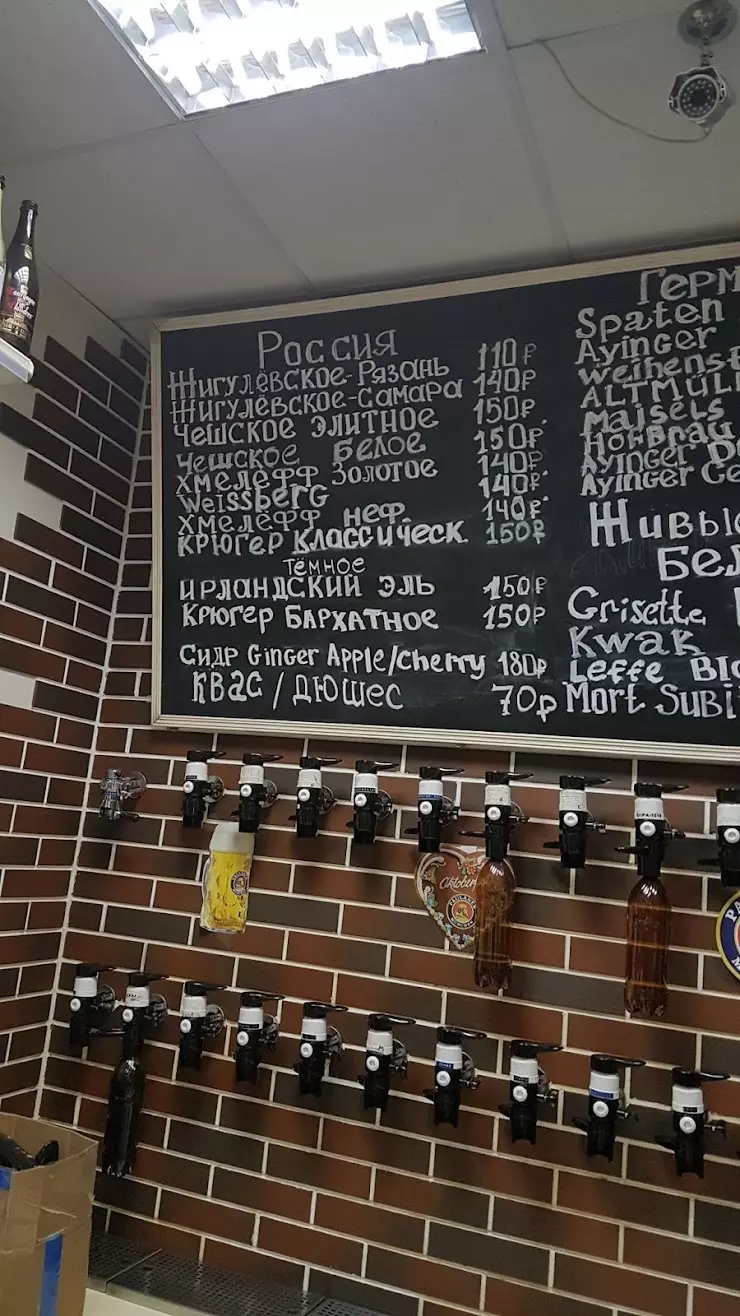 Россия
Жигулёвское-Рязань 110₽
Жигулёвское-Самара 140₽
Чешское элитное 150₽
Чешское белое 150₽
Хмелёфф Золотое 140₽
Weissberg 140₽
Хмелёфф неф. 140₽
Крюгер классическ. 150₽
Тёмное
Ирландский эль 150₽
Крюгер Бархатное 150₽
Сидр Ginger Apple/cherry 180₽
Квас / Дюшес 70р
Герм
Spaten
Ayinger
Weihenst
ALTMÜL
Maisels
Hofbräu
Ayinger
Ayinger Ce
Живы
Бел
Grisette
Kwak
Leffe Bl
Mort Subi
Oktober